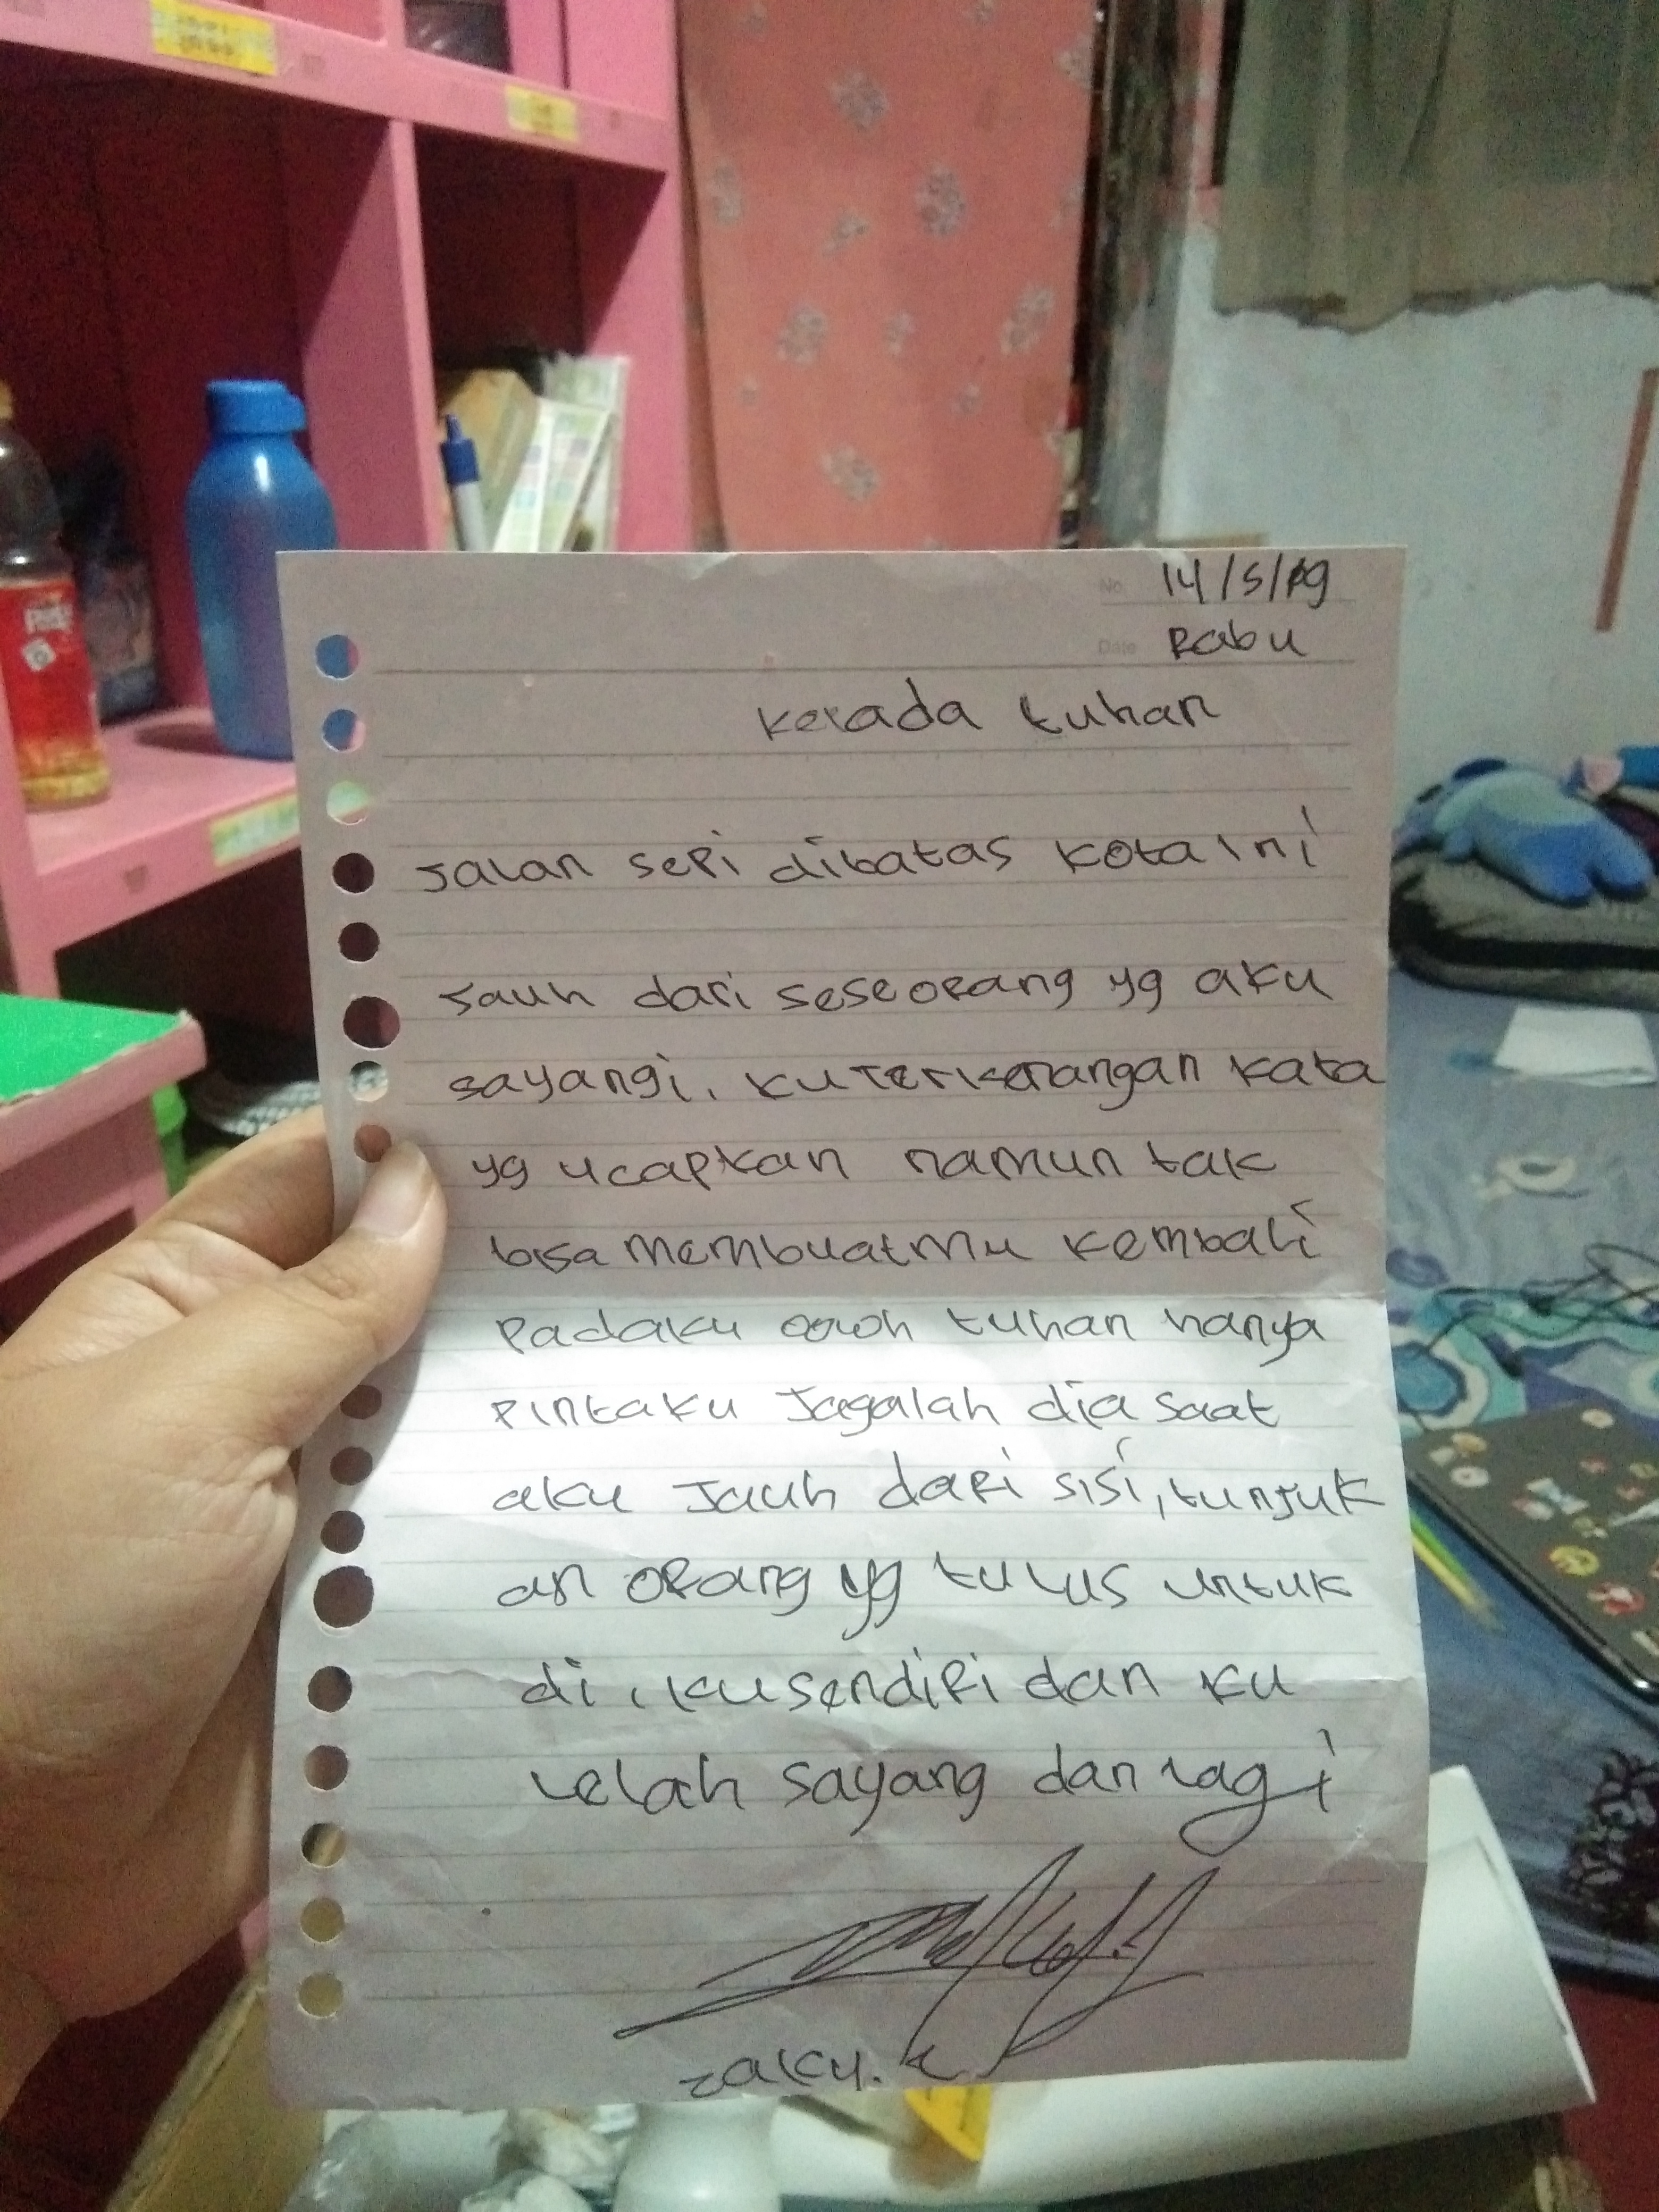 No. 14/5/19
Date Rabu
kepada tuhan
Jalan sepi dibatas kota ini
Jauh dari seseorang yg aku
sayangi. ku terkenangan kata
yg ucapkan namun tak
bisa membuatmu kembali
Padaku oowoh tuhan hanya
Pintaku Jagalah dia saat
aku Jauh dari sisi, tunjuk
an orang yg tulus untuk
di, ku sendiri dan ku
lelah sayang dan lagi
zaky. k